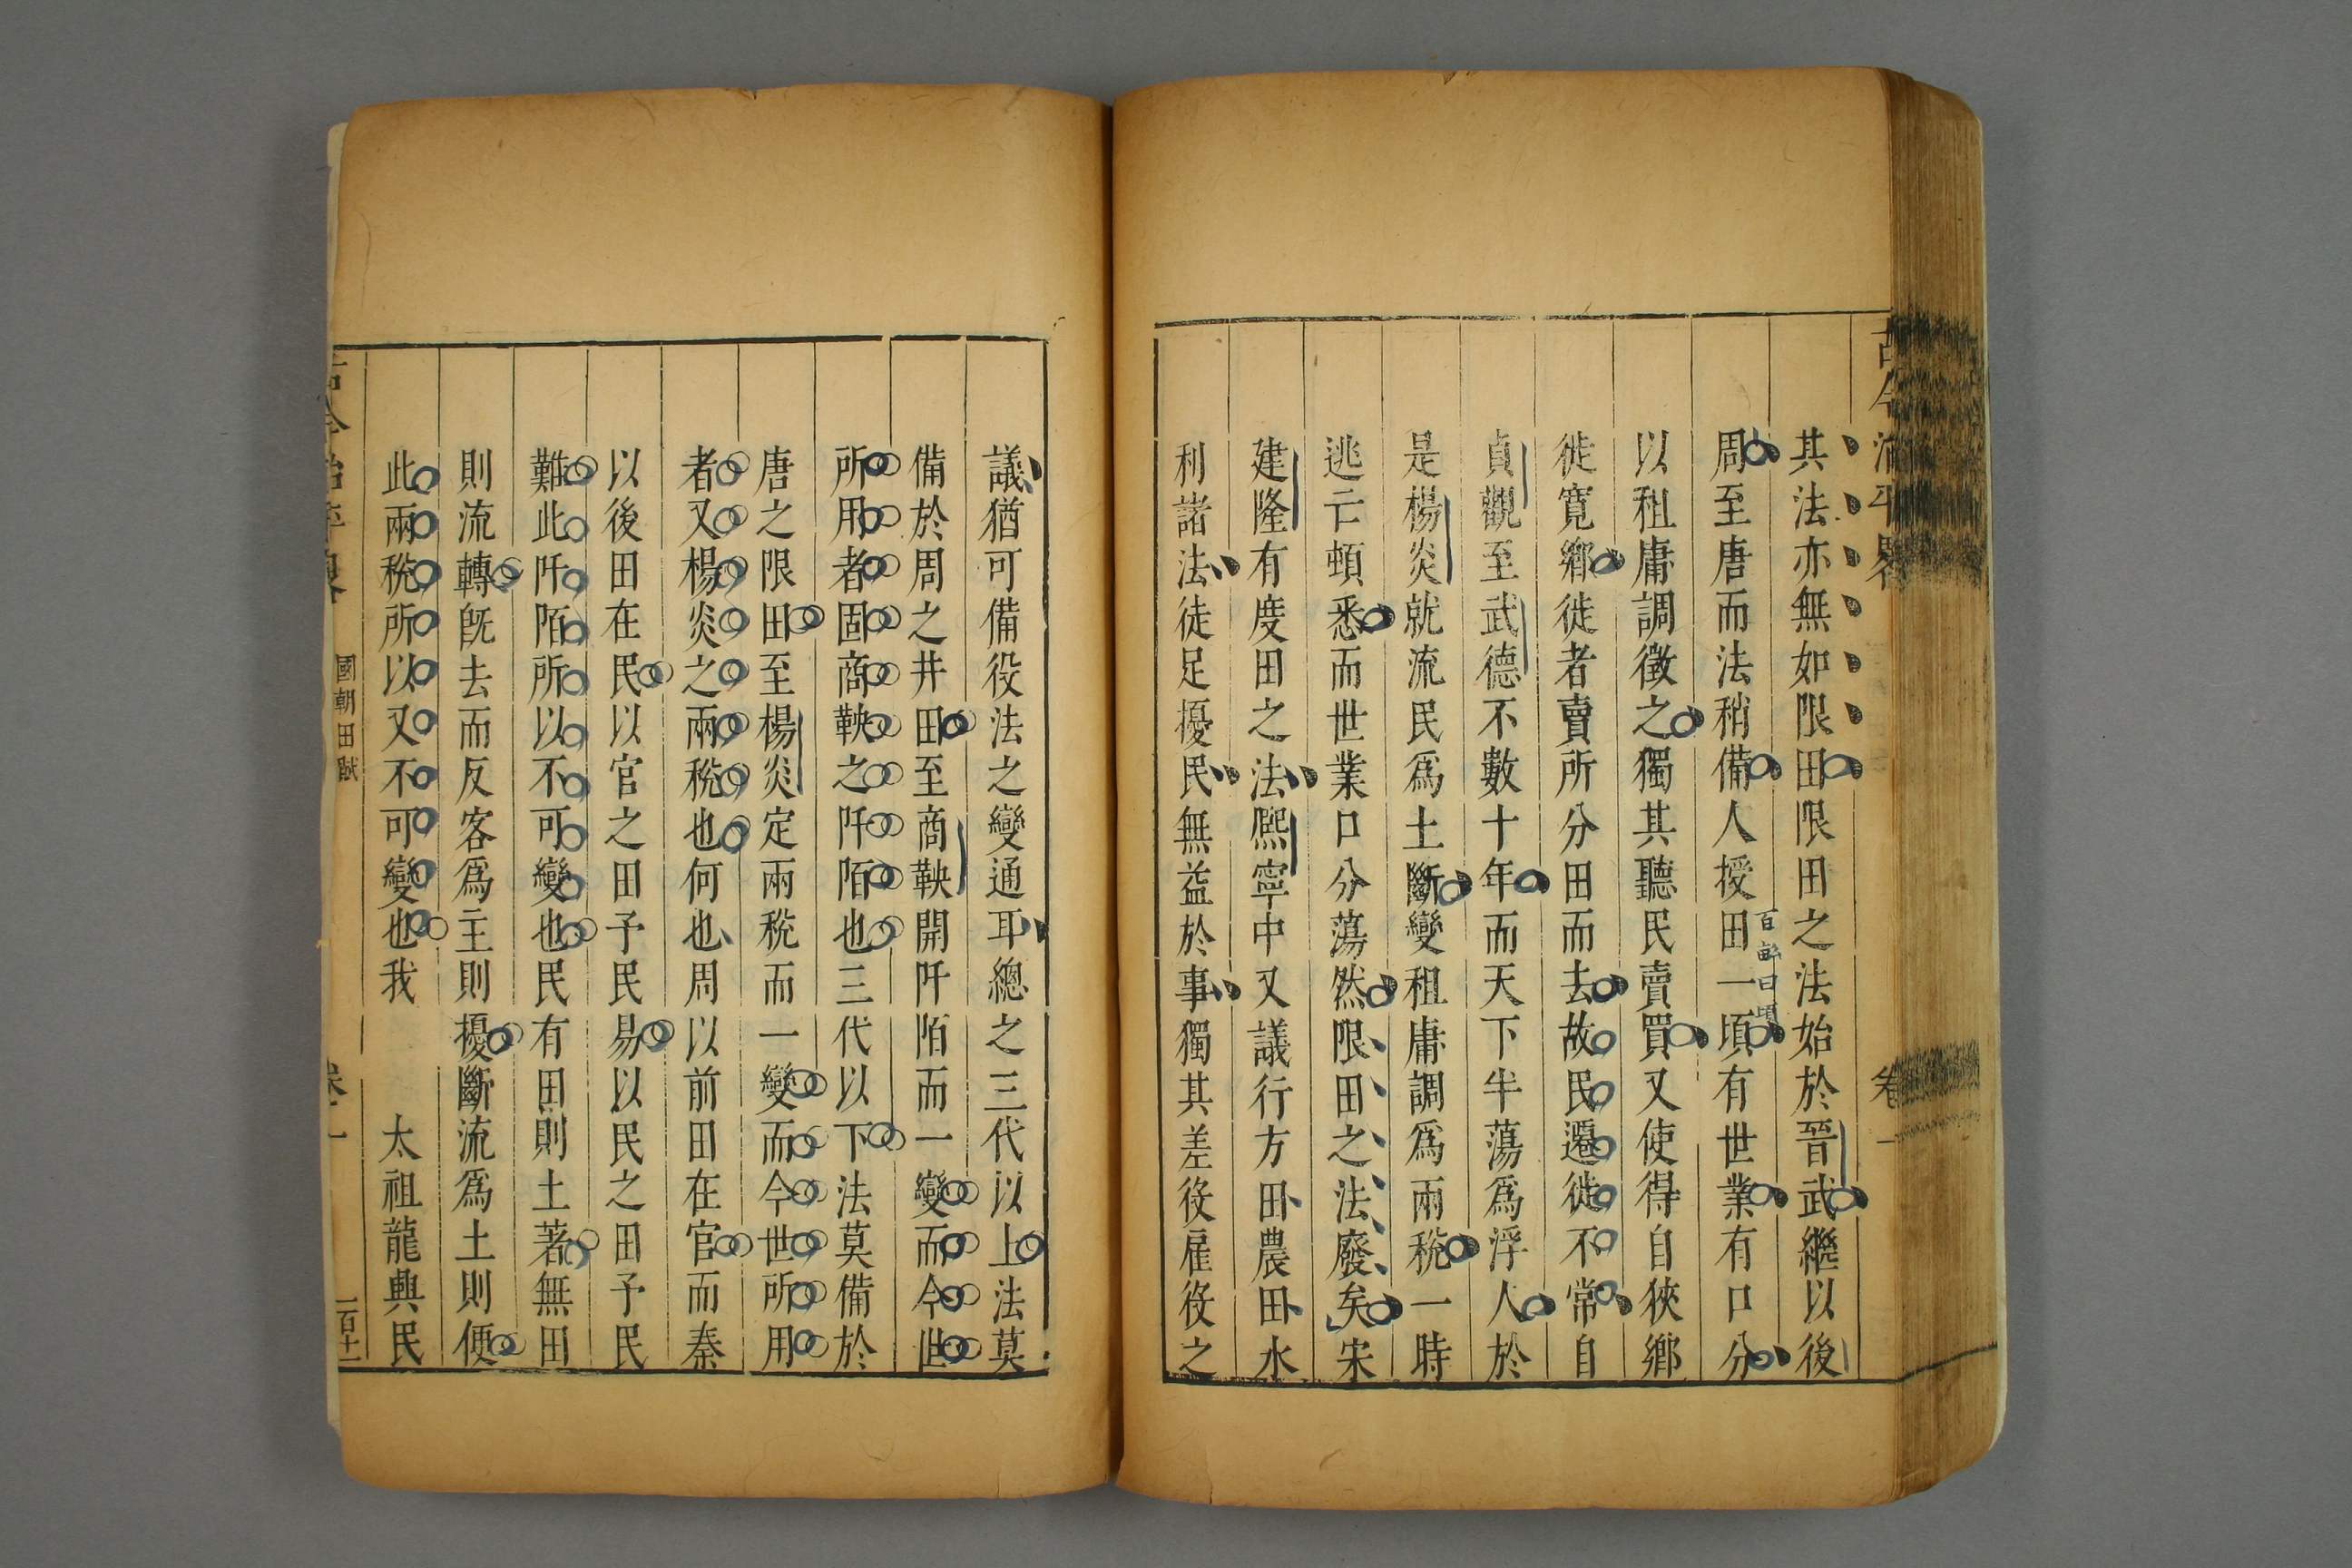 古今治平畧
卷一
其法亦無如限田限田之法始於晉武繼以後
周至唐而法稍備人授田一頃有世業有口分
百畝曰頃
以租庸調徵之獨其聽民賣買又使得自狹鄉
徙寬鄉徙者賣所分田而去故民遷徙不常自
貞觀至武德不數十年而天下半蕩爲浮人於
是楊炎就流民爲土斷變租庸調爲兩稅一時
逃亡頓悉而世業口分蕩然限田之法廢矣宋
建隆有度田之法熈寧中又議行方田農田水
利諸法徒足擾民無益於事獨其差役雇役之
議猶可備役法之變通耳總之三代以上法莫
備於周之井田至商鞅開阡陌而一變而今世
所用者固商鞅之阡陌也三代以下法莫備於
唐之限田至楊炎定兩稅而一變而今世所用
者又楊炎之兩稅也何也周以前田在官而秦
以後田在民以官之田予民易以民之田予民
難此阡陌所以不可變也民有田則土著無田
則流轉旣去而反客爲主則擾斷流爲土則便
此兩稅所以又不可變也我 太祖龍興民
國朝田賦